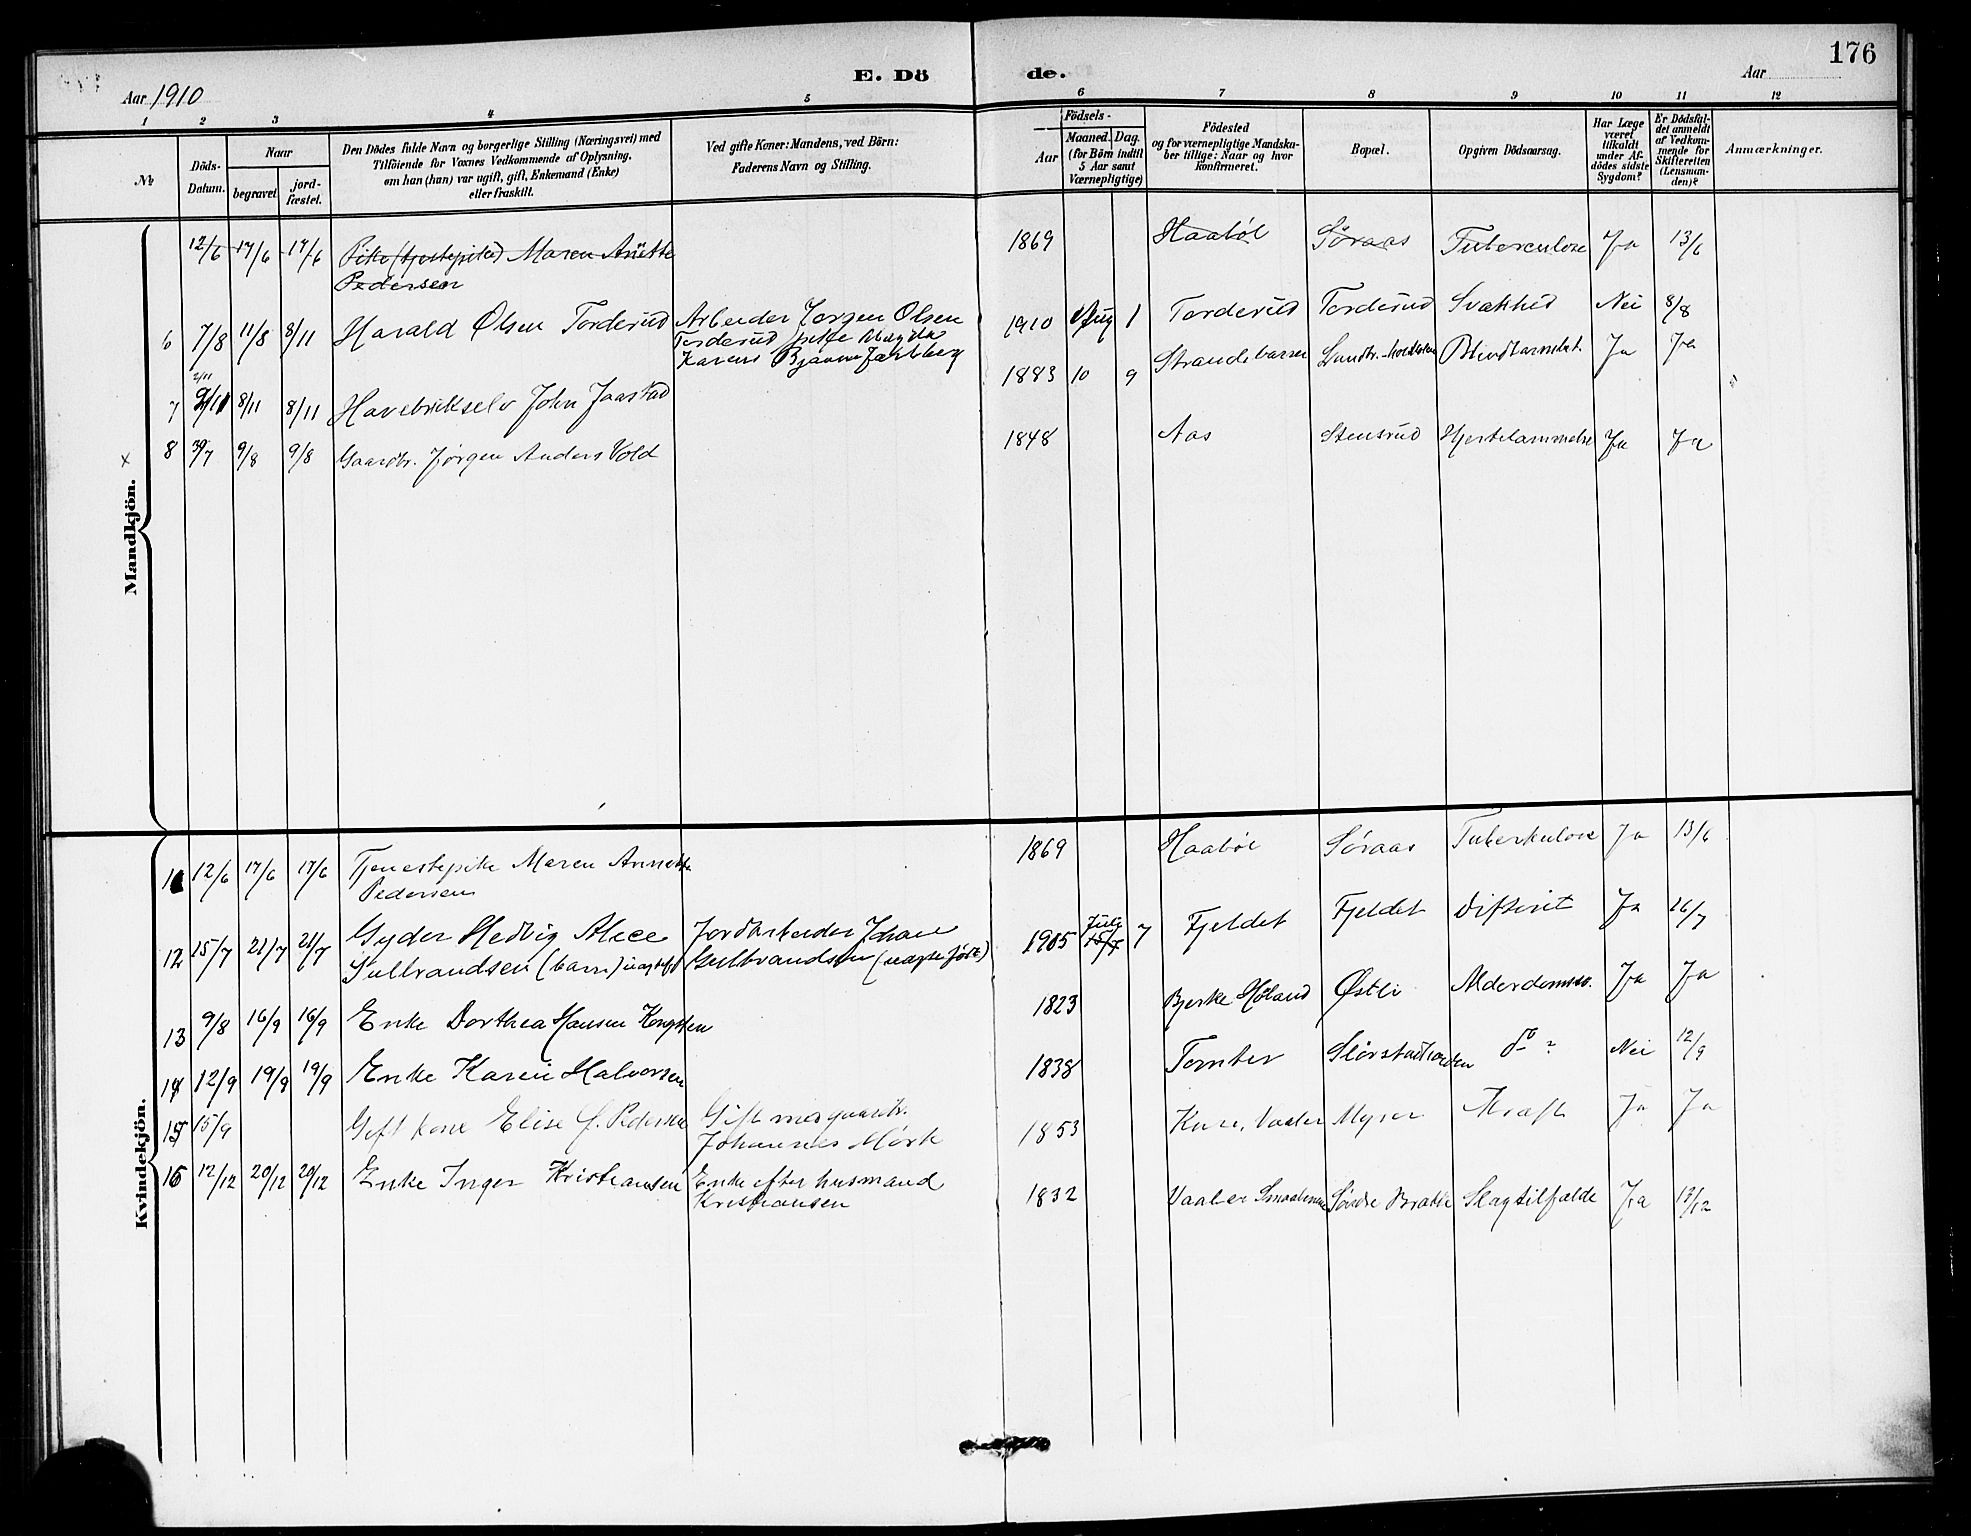 176
E. Dö de.
Aar 1910
Aar
1 2 3 4 5 6 7 8 9 10 11 12
№
Döds-Datum.
Naar
begravet
jord-fæstet.
Den Dödes fulde Navn og borgerlige Stilling (Næringsvei) med
Tilföiende for Voxnes Vedkommende af Oplysning,
om han (hun) var ugift, gift, Enkemand (Enke)
eller fraskilt.
Ved gifte Koner: Mandens, ved Börn:
Faderens Navn og Stilling.
Födsels-
Aar
Maaned. Dag.
(for Börn indtil
5 Aar samt
Værnepligtige)
Födested
og for værnepligtige Mandska-
ber tillige: Naar og hvor
konfirmeret.
Bopæl.
Opgiven Dödsaarsag.
Har Læge
været
tilkaldt
under Af-
dödes sidste
Sygdom?
Er Dödsfal-
det anmeldt
af Vedkom-
mende for
Skifteretten
(Lensman-
den)?
Anmærkninger.
Mandkjön.
12/6 17/6 17/6 Pike (tjenestepike) Maren Anette 1869 Haaböl Søraas Tuberculose Ja 13/6
Pedersen
6 7/8 11/8 8/11 Harald Olsen Torderud Arbeider Jørgen Olsen 1910 Aug 1 Torderud Torderud Svakhed Nei 8/8
Torderud
7 2/11 8/11 8/11 Havebrukselv John Jaastad 1883 10 9 Strandebarm Ja Ja
x 8 30/7 9/8 9/8 Gaardbr. Jørgen Anders Vold 1848 Aas Stensrud Hjertelammelse Ja Ja
Kvindekjön.
11 12/6 17/6 17/6 Tjenestepike Maren Annette 1869 Haaböl Søraas Tuberkulose Ja 13/6
Pedersen
12 15/7 21/7 21/7 Gyder Hedvig Alice Jordarbeider Johan 1905 Juli 7 Fjeldet Fjeldet Difterit Ja 16/7
Gulbrandsen (barn) Gulbrandsen
13 9/8 16/9 16/9 Enke Dorthea Hansen 1823 Bjerke Høland Østli Alderdomssv. Ja Ja
14 12/9 19/9 19/9 Enke Karen Halvorsen 1838 Tomter do Nei 12/9
15 15/9 Gift kone Elise J. Pedersen Gift m. gaardbr. 1853 Kure, Vaaler Myrer Kræft Ja Ja
Johannes Mörk
16 12/12 20/12 20/12 Enke Inger Kristiansen Enke efter husmand 1832 Vaaler Smaalenene Søndre Brække Slagtilfælde Ja 13/12
Kristiansen